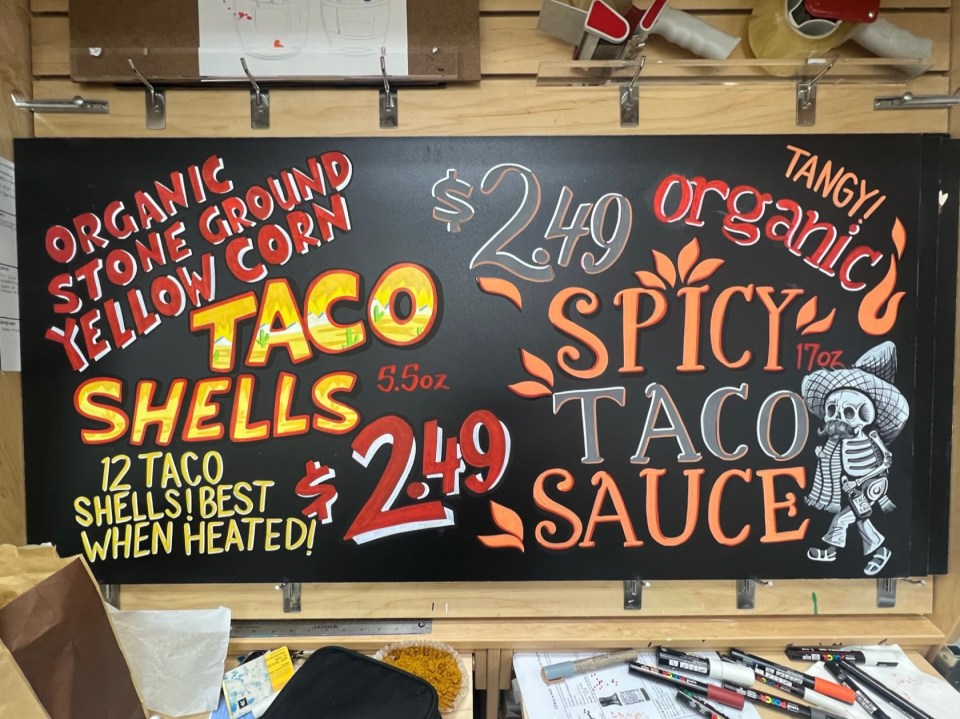 ORGANIC
STONE GROUND
YELLOW CORN
TACO
SHELLS
5.5oz
$2.49
12 TACO
SHELLS! BEST
WHEN HEATED!
$2.49
TANGY!
organic
SPICY
17oz
TACO
SAUCE